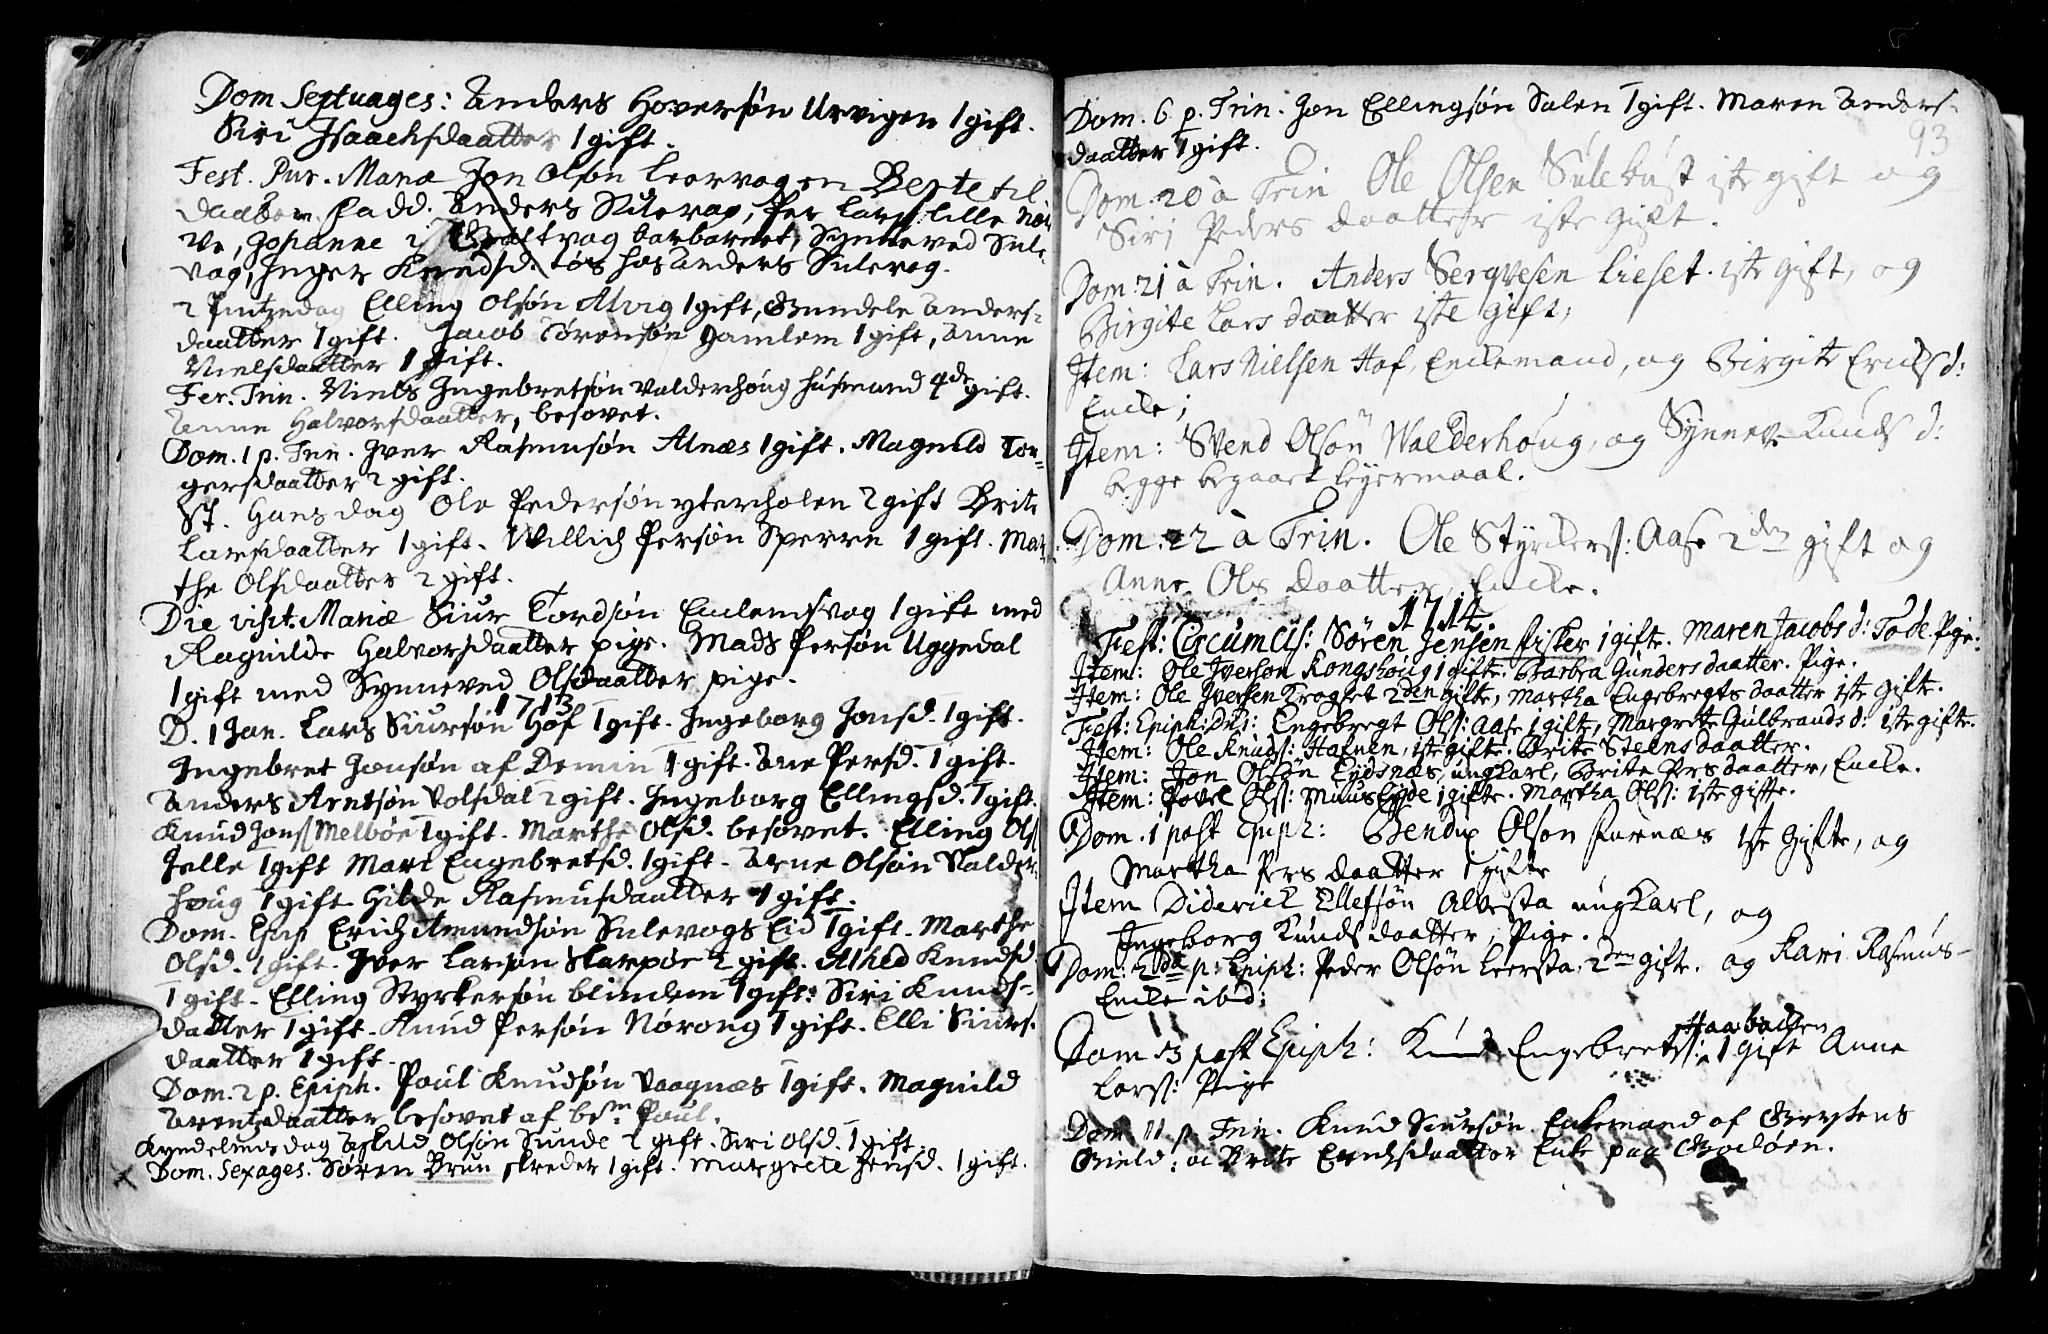 Dom Septuages: Anders Hoversøn Urvigen 1 gift.
Siri Isaachsdaatter 1 gift.
Fest. Pur. Mariæ Jon Olsøn Leervogen Berte til
daaben fadd. Anders Sulevog, Per Lars: lille Nør
ve, Johanne i vog barbaret, Synneved Sule-
vog, Inger Knudsd. tøs hos Anders Sulevog.
2 Pintzedag Elling Olsøn Alvig 1 gift, Gundele Anders-
daatter 1 gift. Jacob Sørensøn Gamlem 1 gift, Anne
Nielsdaatter 1 gift.
Fer. Trin. Niels Ingebretsøn Valderhoug husmand 4de gift.
Anne Halvorsdaatter, besovet.
Dom. 1 p. Trin. Iver Rasmusøn Alnæs 1 gift. Magnild Tor-
gersdaatter 2 gift.
St. Hans dag Ole Pedersøn yterholen 2 gift Brite
Larsdaatter 1 gift. Willich Persøn Sperre 1 gift. Mar-
the Olsdaatter 2 gift.
Die visit. Mariæ Siur Tordsøn Emlemsvog 1 gift med
Ragnilde Halvorsdaatter pige. Mads Persøn Uggedal
1 gift med Synneved Olsdaatter pige.
1713
D. 1 Jan. Lars Siursøn Hof 1 gift. Ingeborg Jonsd. 1 gift.
Ingebret Jonsøn af Demin 1 gift. Ane Persd. 1 gift.
Anders Arntsøn Volsdal 2 gift. Ingeborg Ellingsd. 1 gift.
Knud Jons Melbøe 1 gift. Marthe Olsd. besovet. Elling Ols
Jelle 1 gift Mari Engebretsd. 1 gift. Arne Olsøn Valder-
houg 1 gift Hilde Rasmusdaatter 1 gift.
Dom. Epip Erich Amundsøn Sulevogs Eid 1 gift. Marthe
Olsd. 1 gift. Iver Larsøn Skarpøe 2 gift. Alhed Knudsd
1 gift. Elling Styrkersøn blindem 1 gift: Siri Knuds-
datter 1 gift. Knud Persøn Nørong 1 gift. Elli Siurs-
daatter 1 gift.
Dom. 2 p. Epiph. Poul Knudsøn Vaagnæs 1 gift. Magnild
Arentzdaatter besovet af bem. Poul.
Kyndelmis dag Askild Olsøn Sunde 2 gift. Siri Olsd. 1 gift.
Dom. Sexages. Søren Brun skreder 1 gift. Margrete Jensd. 1 gift.
93
Dom. 6 p. Trin. Jon Ellingsøn Salen 1 gift. Maren Anders-
daatter 1 gift.
Dom. 20 à Trin Ole Olsen Sulebust iste gift og
Siri Peders daatter iste Gift.
Dom: 21 à Trin. Anders Serqvesen Lieset. iste gift, og
Birgite Lars daatter iste Gift;
Item: Lars Nielsen Hof, Enckemand, og Birgite Ericks d:
Encke;
Item: Svend Olsøn Walderhoug, og Synnev Knuds d:
begge begaaet leyermaal.
Dom: 22 à Trin. Ole Styrckers: Aase 2den gift og
Anne Ols Daatter, Encke.
1714.
Fest: Circumcis: Søren Jensen fisker 1 gifte. Maren Jacobs d: Tode. Pige:
Item: Ole Iverson Kongshoug 1 gifte. Barbra Gunders daatter. Pige.
Item: Ole Iversen 2den gifte, Martha Engebregts daatter iste Gifte.
Fest: Epiph: Dni: Engebregt Ols: Aase 1 gifte, Margrete Gulbrands d: iste gifte.
Item: Ole Knuds: Hafnen, iste gifte. Brite Steens daatter.
Item: Jon Olsøn Eydsnæs, ungkarl, Brite Pers daatter, Encke.
Item: Povel Ols: Muus Eyde 1 gifte. Martha Ols: iste gifte.
Dom. 1 post Epiph: Bendix Olson Furnæs iste Gifte, og
Martha Pers daatter 1 gifte
Item Diderick Ellefsøn Alvesta ungkarl, og
Ingeborg Knuds daatter, Pige.
Dom: 2da p: Epiph: Peder Olsøn Leersta, 2den gift. og Kari Rasmus-
Encke ibid:
Haabacken
Dom 3 post Epiph: Knud Engebrets: 1 gift Anne
Lars: Pige
Dom. 11 p. Trin. Knud Siursøn Enkemand af Grytens
Gield: oc Brite Erichsdaatter Enke paa Godøen.